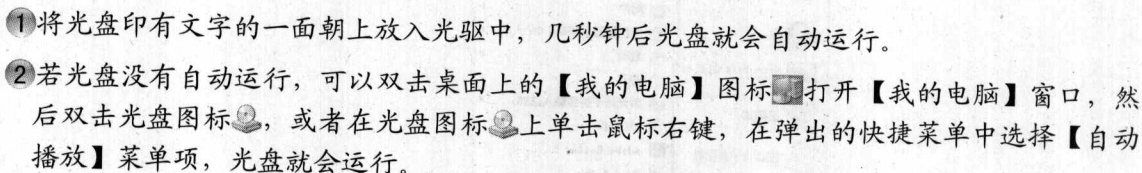 ①将光盘印有文字的一面朝上放入光驱中，几秒钟后光盘就会自动运行。
②若光盘没有自动运行，可以双击桌面上的【我的电脑】图标打开【我的电脑】窗口，然
后双击光盘图标，或者在光盘图标上单击鼠标右键，在弹出的快捷菜单中选择【自动
播放】菜单项，光盘就会运行。